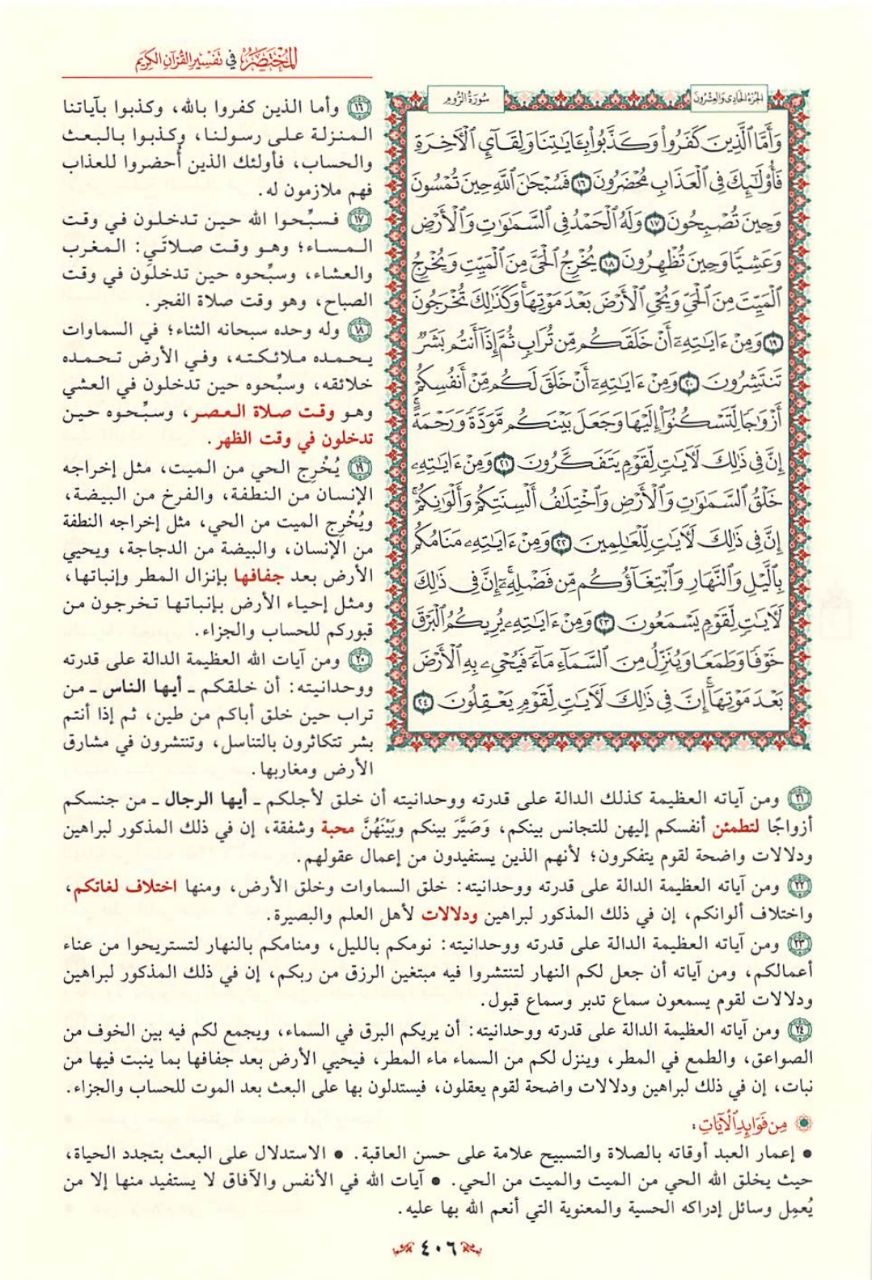 المُخْتَصَرُ في تَفْسِيرِ القُرْآنِ الكَرِيمِ
الجزء الحادي والعشرون
سُورَةُ الرُّومِ
وَأَمَّا ٱلَّذِينَ كَفَرُواْ وَكَذَّبُواْ بِـَٔايَٰتِنَا وَلِقَآيِٕ ٱلۡأٓخِرَةِ
فَأُوْلَٰٓئِكَ فِي ٱلۡعَذَابِ مُحۡضَرُونَ ١٦ فَسُبۡحَٰنَ ٱللَّهِ حِينَ تُمۡسُونَ
وَحِينَ تُصۡبِحُونَ ١٧ وَلَهُ ٱلۡحَمۡدُ فِي ٱلسَّمَٰوَٰتِ وَٱلۡأَرۡضِ
وَعَشِيّٗا وَحِينَ تُظۡهِرُونَ ١٨ يُخۡرِجُ ٱلۡحَيَّ مِنَ ٱلۡمَيِّتِ وَيُخۡرِجُ
ٱلۡمَيِّتَ مِنَ ٱلۡحَيِّ وَيُحۡيِ ٱلۡأَرۡضَ بَعۡدَ مَوۡتِهَاۚ وَكَذَٰلِكَ تُخۡرَجُونَ
١٩ وَمِنۡ ءَايَٰتِهِۦٓ أَنۡ خَلَقَكُم مِّن تُرَابٖ ثُمَّ إِذَآ أَنتُم بَشَرٞ
تَنتَشِرُونَ ٢٠ وَمِنۡ ءَايَٰتِهِۦٓ أَنۡ خَلَقَ لَكُم مِّنۡ أَنفُسِكُمۡ
أَزۡوَٰجٗا لِّتَسۡكُنُوٓاْ إِلَيۡهَا وَجَعَلَ بَيۡنَكُم مَّوَدَّةٗ وَرَحۡمَةًۚ
إِنَّ فِي ذَٰلِكَ لَأٓيَٰتٖ لِّقَوۡمٖ يَتَفَكَّرُونَ ٢١ وَمِنۡ ءَايَٰتِهِۦ
خَلۡقُ ٱلسَّمَٰوَٰتِ وَٱلۡأَرۡضِ وَٱخۡتِلَٰفُ أَلۡسِنَتِكُمۡ وَأَلۡوَٰنِكُمۡۚ
إِنَّ فِي ذَٰلِكَ لَأٓيَٰتٖ لِّلۡعَٰلِمِينَ ٢٢ وَمِنۡ ءَايَٰتِهِۦ مَنَامُكُم
بِٱلَّيۡلِ وَٱلنَّهَارِ وَٱبۡتِغَآؤُكُم مِّن فَضۡلِهِۦٓۚ إِنَّ فِي ذَٰلِكَ
لَأٓيَٰتٖ لِّقَوۡمٖ يَسۡمَعُونَ ٢٣ وَمِنۡ ءَايَٰتِهِۦ يُرِيكُمُ ٱلۡبَرۡقَ
خَوۡفٗا وَطَمَعٗا وَيُنَزِّلُ مِنَ ٱلسَّمَآءِ مَآءٗ فَيُحۡيِۦ بِهِ ٱلۡأَرۡضَ
بَعۡدَ مَوۡتِهَآۚ إِنَّ فِي ذَٰلِكَ لَأٓيَٰتٖ لِّقَوۡمٖ يَعۡقِلُونَ ٢٤
١٦ وأما الذين كفروا بالله، وكذبوا بآياتنا
المنزلة على رسولنا، وكذبوا بالبعث
والحساب، فأولئك الذين أُحضروا للعذاب
فهم ملازمون له.
١٧ فسبِّحوا الله حين تدخلون في وقت
المساء؛ وهو وقت صلاتَي: المغرب
والعشاء، وسبِّحوه حين تدخلون في وقت
الصباح، وهو وقت صلاة الفجر.
١٨ وله وحده سبحانه الثناء؛ في السماوات
يحمده ملائكته، وفي الأرض تحمده
خلائقه، وسبِّحوه حين تدخلون في العشي
وهو وقت صلاة العصر، وسبِّحوه حين
تدخلون في وقت الظهر.
١٩ يُخْرِج الحي من الميت، مثل إخراجه
الإنسان من النطفة، والفرخ من البيضة،
ويُخْرِج الميت من الحي، مثل إخراجه النطفة
من الإنسان، والبيضة من الدجاجة، ويحيي
الأرض بعد جفافها بإنزال المطر وإنباتها،
ومثل إحياء الأرض بإنباتها تخرجون من
قبوركم للحساب والجزاء.
٢٠ ومن آيات الله العظيمة الدالة على قدرته
ووحدانيته: أن خلقكم ـ أيها الناس ـ من
تراب حين خلق أباكم من طين، ثم إذا أنتم
بشر تتكاثرون بالتناسل، وتنتشرون في مشارق
الأرض ومغاربها.
٢١ ومن آياته العظيمة كذلك الدالة على قدرته ووحدانيته أن خلق لأجلكم ـ أيها الرجال ـ من جنسكم
أزواجًا لتطمئن أنفسكم إليهن للتجانس بينكم، وَصَيَّرَ بينكم وبَيْنَهُنَّ محبة وشفقة، إن في ذلك المذكور لبراهين
ودلالات واضحة لقوم يتفكرون؛ لأنهم الذين يستفيدون من إعمال عقولهم.
٢٢ ومن آياته العظيمة الدالة على قدرته ووحدانيته: خلق السماوات وخلق الأرض، ومنها اختلاف لغاتكم،
واختلاف ألوانكم، إن في ذلك المذكور لبراهين ودلالات لأهل العلم والبصيرة.
٢٣ ومن آياته العظيمة الدالة على قدرته ووحدانيته: نومكم بالليل، ومنامكم بالنهار لتستريحوا من عناء
أعمالكم، ومن آياته أن جعل لكم النهار لتنتشروا فيه مبتغين الرزق من ربكم، إن في ذلك المذكور لبراهين
ودلالات لقوم يسمعون سماع تدبر وسماع قبول.
٢٤ ومن آياته العظيمة الدالة على قدرته ووحدانيته: أن يريكم البرق في السماء، ويجمع لكم فيه بين الخوف من
الصواعق، والطمع في المطر، وينزل لكم من السماء ماء المطر، فيحيي الأرض بعد جفافها بما ينبت فيها من
نبات، إن في ذلك لبراهين ودلالات واضحة لقوم يعقلون، فيستدلون بها على البعث بعد الموت للحساب والجزاء.
مِن فَوَائِدِ الآيَاتِ:
• إعمار العبد أوقاته بالصلاة والتسبيح علامة على حسن العاقبة. • الاستدلال على البعث بتجدد الحياة،
حيث يخلق الله الحي من الميت والميت من الحي. • آيات الله في الأنفس والآفاق لا يستفيد منها إلا من
يُعمِل وسائل إدراكه الحسية والمعنوية التي أنعم الله بها عليه.
٤٠٦